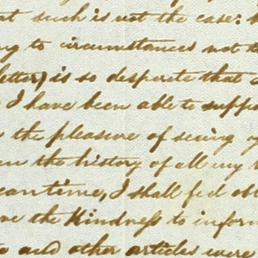 such is not the case:
to circumstances not
letter) is so desperate that
I have been able to suppo
the pleasure of seeing
the history of all my
meantime, I shall feel obl
the Kindness to inform
and other articles were